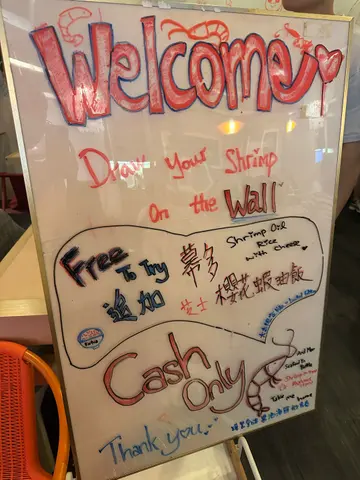 Welcome
Draw your Shrimp
on the Wall
Free To Try
Shrimp Oil
Rice
with cheese
追加 芝士 幕多
櫻花蝦油飯
Cash
Only
Take me home
Thank you